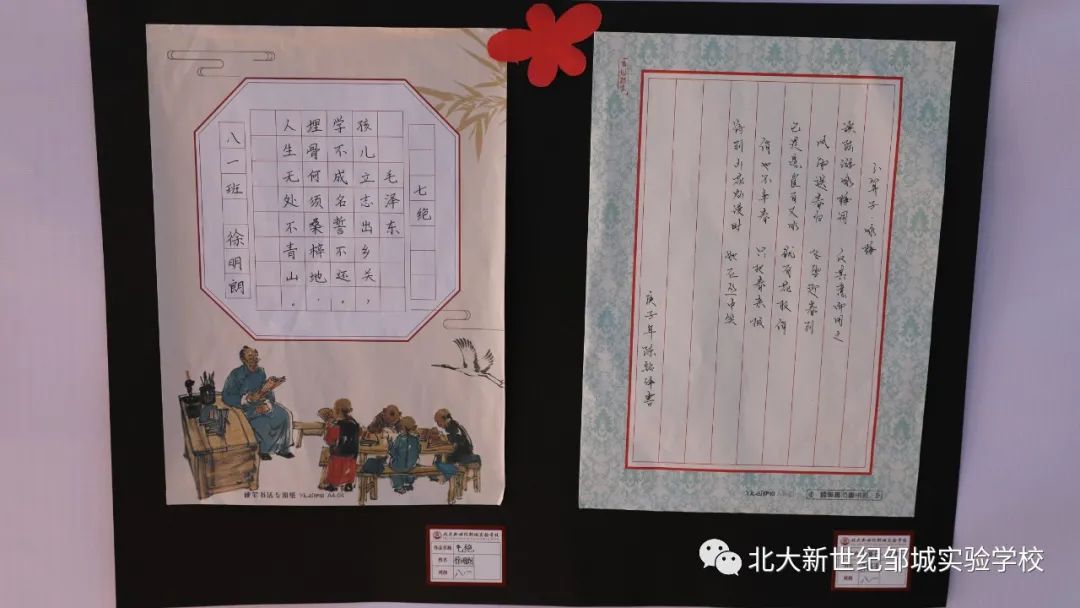 七绝
毛泽东
孩儿立志出乡关，
学不成名誓不还。
埋骨何须桑梓地，
人生无处不青山。
八一班 徐明朗
卜算子·咏梅
读陆游咏梅词 反其意而用之
风雨送春归 飞雪迎春到
已是悬崖百丈冰 犹有花枝俏
俏也不争春 只把春来报
待到山花烂漫时 她在丛中笑
庚子年陈
书
北大新世纪邹城实验学校
作品名称 七绝
姓名 徐明朗
班级 八一
北大新世纪邹城实验学校
班级 八一
北大新世纪邹城实验学校